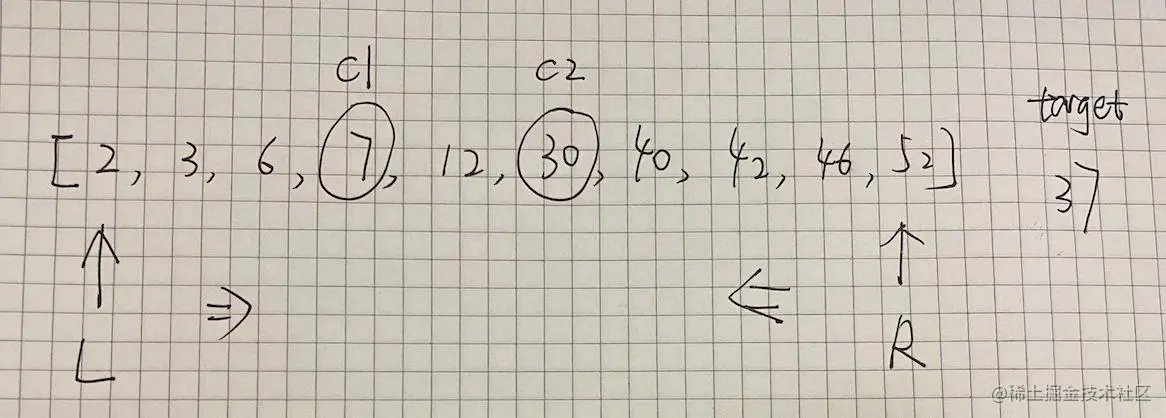 c1 c2
target
[2, 3, 6, 7, 12, 30, 40, 42, 46, 52]
37
L R
@稀土掘金技术社区